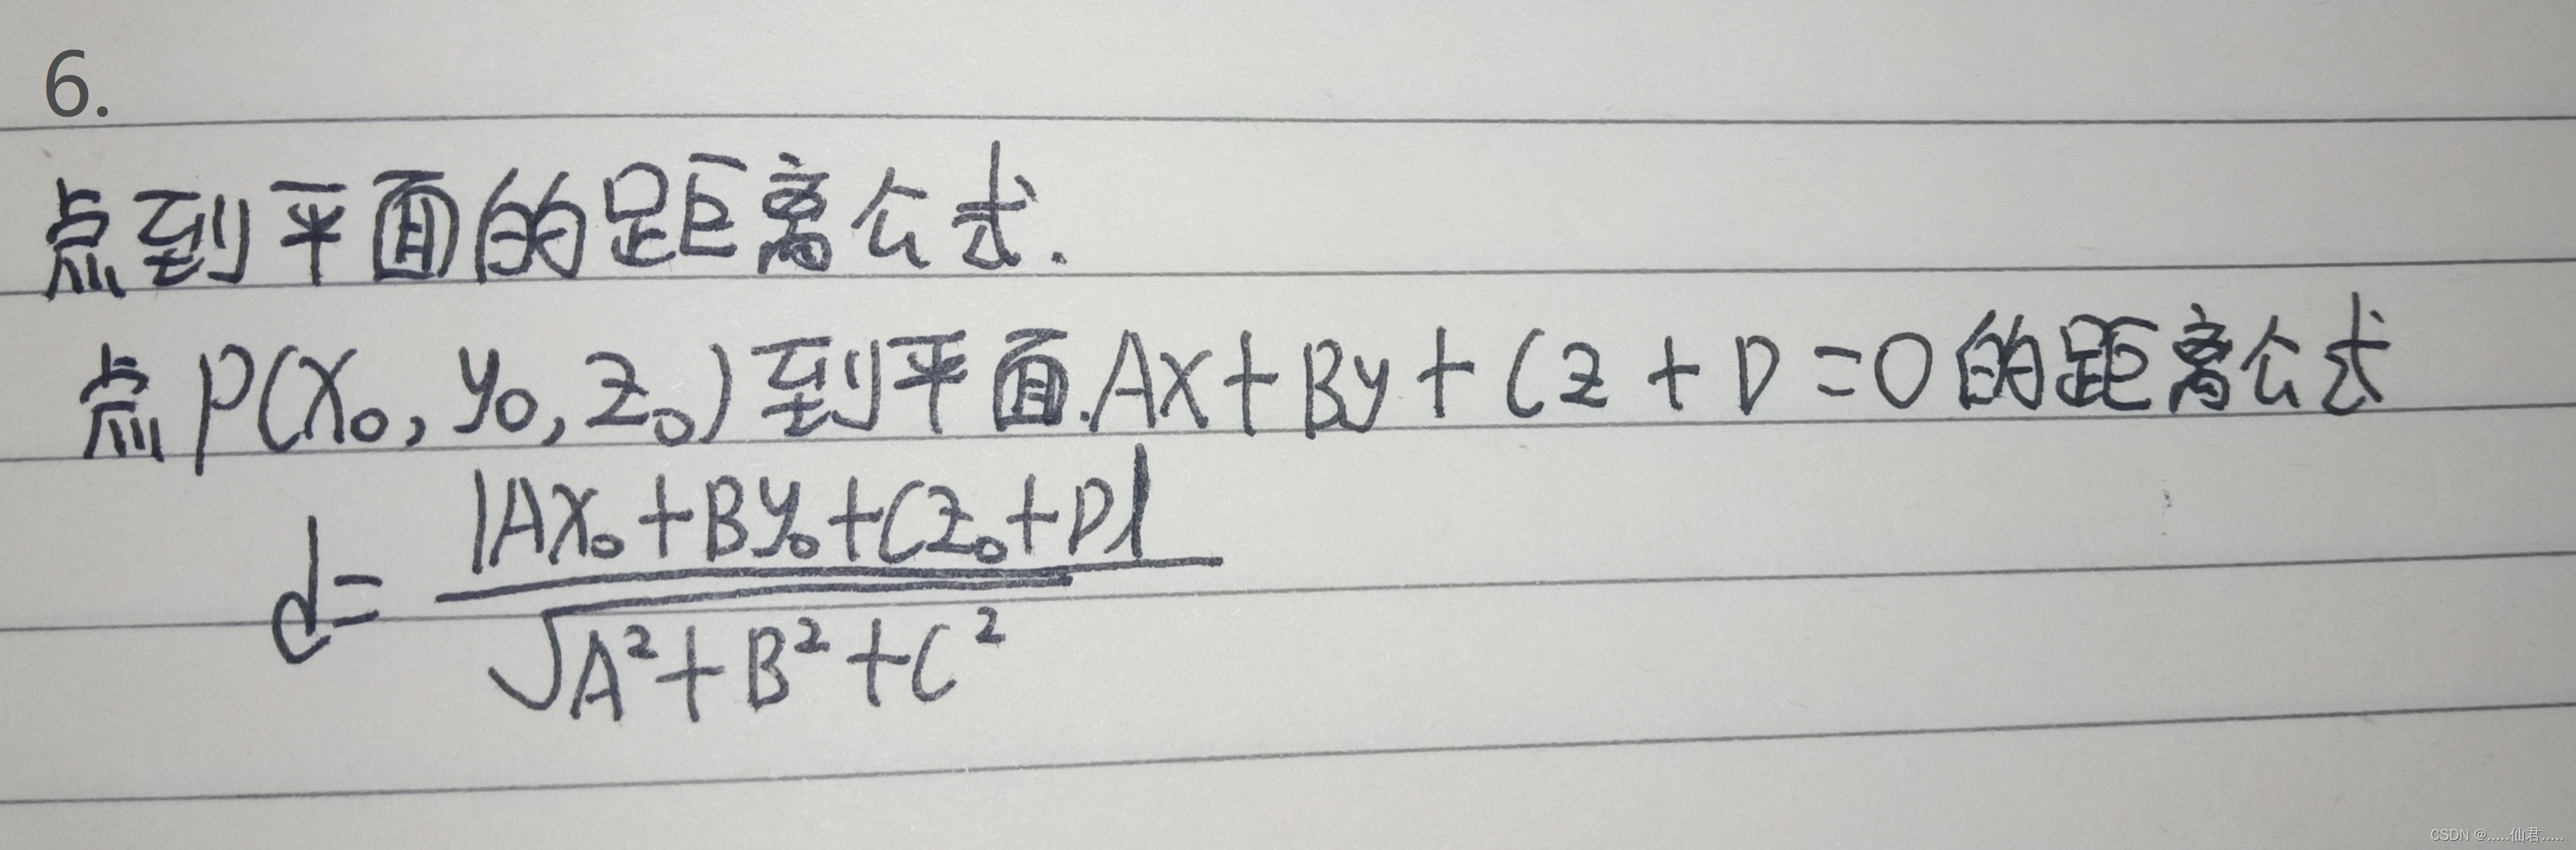 6.
点到平面的距离公式.
点P(x₀,y₀,z₀)到平面.Ax+By+Cz+D=0的距离公式
d=|Ax₀+By₀+Cz₀+D|/√(A²+B²+C²)
CSDN @.....仙君.....